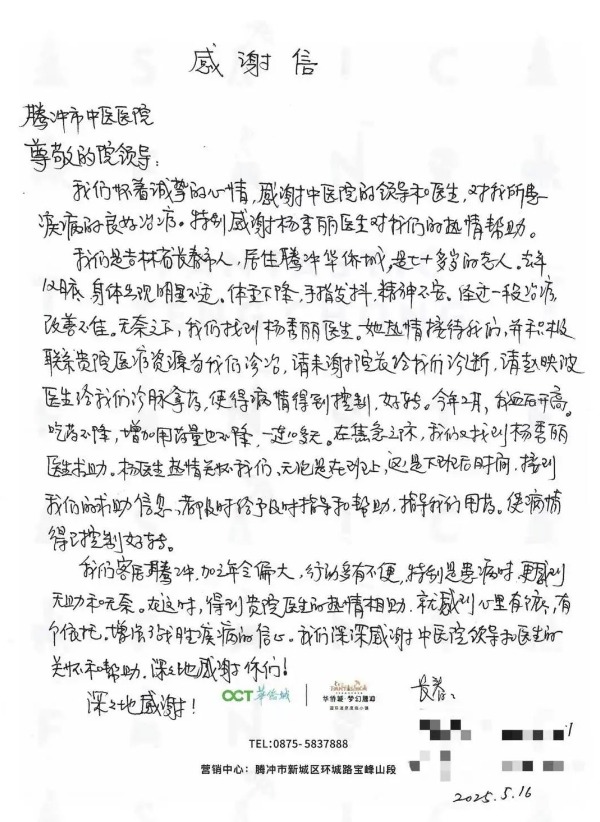 感谢信
腾冲市中医医院
尊敬的院领导：
我们怀着诚挚的心情，感谢中医院的领导和医生，对我所患
疾病的良好治疗。特别感谢杨秀丽医生对我们的热情帮助。
我们是吉林省长春市人，居住腾冲华侨城，是七十多岁的老人。去年
12月底，身体出现明显不适。体重下降，手指发抖，精神不安。经过一段治疗，
改善不佳。无奈之下，我们找到杨秀丽医生。她热情接待我们，并积极
联系贵院医疗资源为我们诊治，请来谢院长给我们诊断，请赵映波
医生给我们诊脉拿药，使得病情得到控制，好转。今年2月，我血压升高。
吃药不降，增加用药量也不降，一连多天。在焦急之际，我们又找到杨秀丽
医生求助。杨医生热情关怀我们。无论是在班上，还是下班后时间，接到
我们的求助信息，都及时给予及时指导和帮助，指导我们用药。使病情
得到控制好转。
我们客居腾冲，加之年令偏大，行动多有不便，特别是患病时，更感到
无助和无奈。在这时，得到贵院医生的热情相助，就感到心里有底，有
个依托。增强了战胜疾病的信心。我们深深感谢中医院领导和医生的
关怀和帮助。深深地感谢你们！
深深地感谢！
OCT华侨城
华侨城·梦幻腾冲
长春：
TEL:0875-5837888
营销中心：腾冲市新城区环城路宝峰山段
2025.5.16